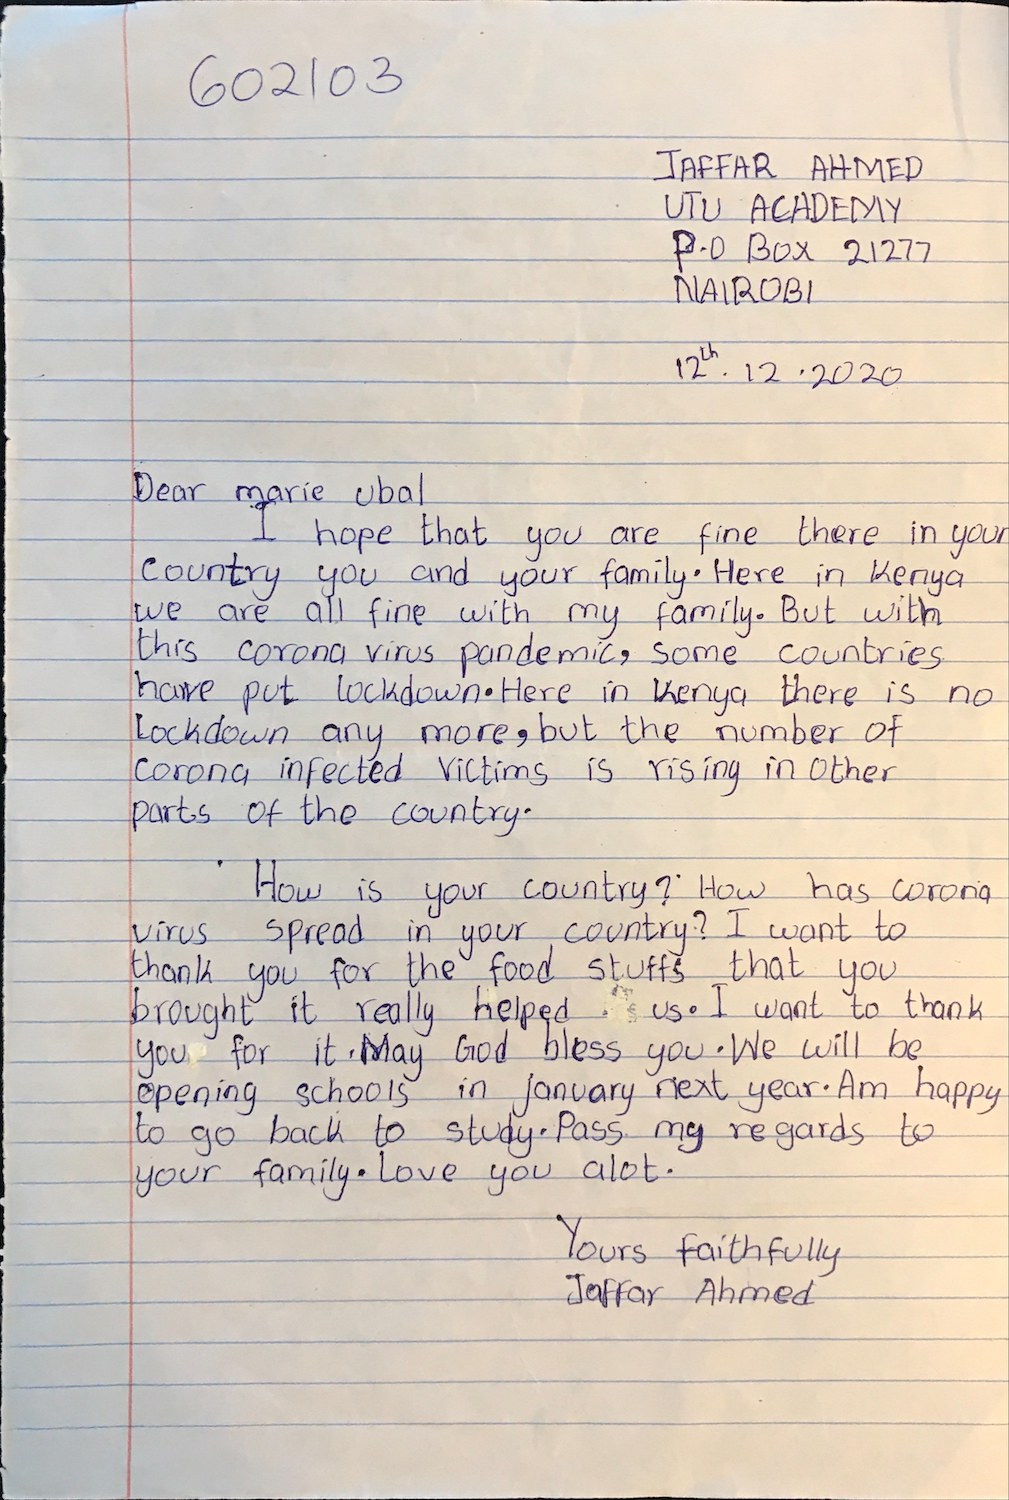 602103
JAFFAR AHMED
UTU ACADEMY
P.O BOX 21277
NAIROBI
12th. 12 .2020
Dear marie ubal
I hope that you are fine there in your
country you and your family. Here in Kenya
we are all fine with my family. But with
this corona virus pandemic, some countries
have put lockdown. Here in Kenya there is no
lockdown any more, but the number of
corona infected victims is rising in other
parts of the country.
How is your country? How has corona
virus spread in your country? I want to
thank you for the food stuffs that you
brought it really helped us. I want to thank
you for it. May God bless you. We will be
opening schools in january next year. Am happy
to go back to study. Pass my regards to
your family. Love you alot.
Yours faithfully
Jaffar Ahmed